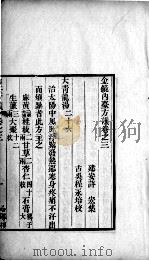 金鏡內臺方議卷之三
建安許　宏集
古吳程永培校
大青龍湯二十六
治太陽中風脈浮緊發熱惡寒身疼痛不汗出
而煩躁者此方主之
麻黃 桂枝二 甘草二 杏仁四十 石膏
生薑三 大棗十二